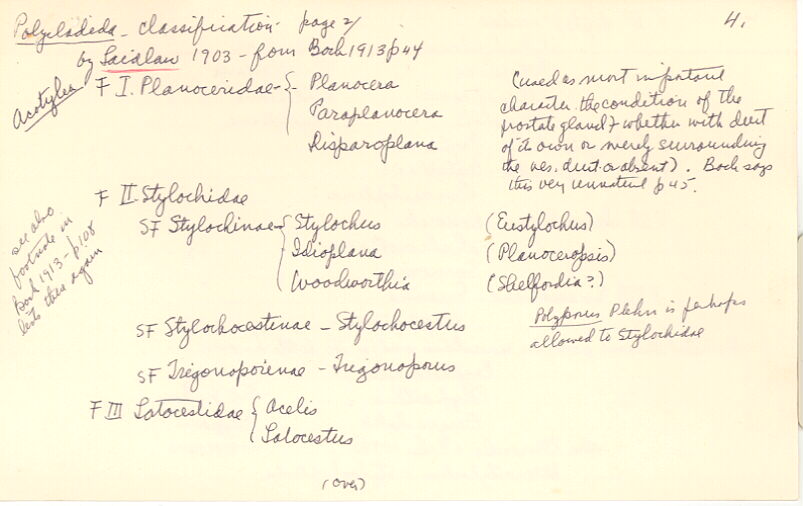 Polycladida - classification - page 2/
4.
by Laidlaw 1903 - from Bock 1913 p 44
Acotylea
F I. Planoceridae - { - Planocera
Paraplanocera
Disparoplana
(used as most important
character the condition of the
prostate gland & whether with duct
of its own or merely surrounding
the vas. duct or absent). Bock says
this very unnatural p 45.
F II. Stylochidae
SF Stylochinae - { Stylochus (Eustylochus)
Idioplana (Planoceropsis)
Woodworthia (Shelfordia?)
see also
footnote in
Bock 1913 - p 108
lists them again
Polyporus Plehn is perhaps
allowed to Stylochidae
SF Stylochocestinae - Stylochocestus
SF Trigonoporinae - Trigonoporus
F III Latocestidae { Acelis
Latocestus
(over)